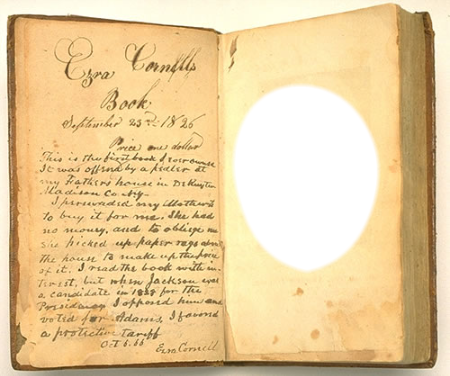 Ezra Cornells
Book
September 23rd 1826
Price one dollar
This is the first book I ever owned
It was offered by a pedler at
my Fathers house in DeRuyter
Madison Co Ny
I perswaded my Mother
to buy it for me. She had
no money, and to oblige me
she picked up paper rags about
the house to make up the price
of it. I read the book with in-
terest, but when Jackson was
a candidate in 1828 for the
Presidency I opposed him and
voted for Adams, I favord
a protective tariff
Oct 6. 65
Ezra Cornell